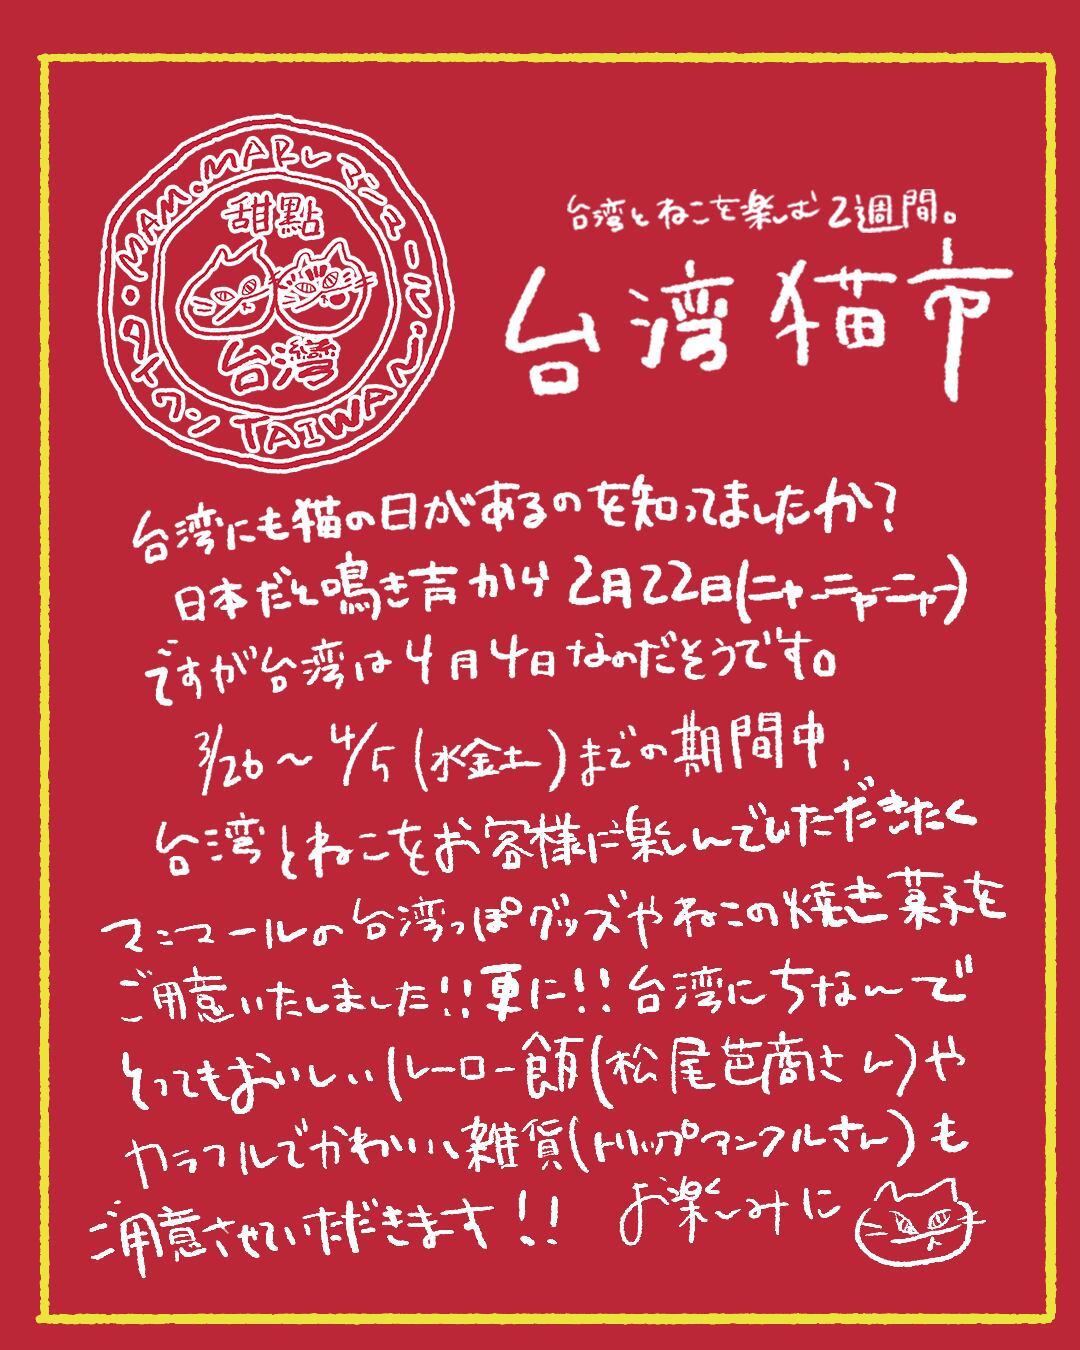 MAM.MARL マンマール
甜點
台灣
タイワン TAIWAN
台湾とねこを楽しむ2週間。
台湾猫市
台湾にも猫の日があるのを知ってましたか?
日本だと鳴き声から2月22日(ニャーニャーニャー)
ですが台湾は4月4日なのだそうです。
3/26〜4/5(水金土)までの期間中、
台湾とねこをお客様に楽しんでいただきたく
マンマールの台湾っぽグッズやねこの焼き菓子を
ご用意いたしました!!更に!!台湾にちなんで
とってもおいしいルーロー飯(松尾芭商さん)や
カラフルでかわいい雑貨(トリップアンクルさん)も
ご用意させていただきます!!
お楽しみに